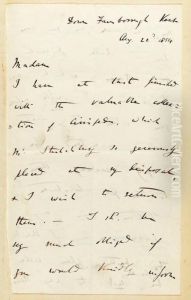 Down Farnborough Kent
Aug. 22d 1854
Madam
I have at last finished
with the valuable collec-
=tion of Cirripedes, which
Mr Stutchbury so generously
placed at my disposal,
& I wish to return
them. — I shd. be
very much obliged if
you would kindly inform